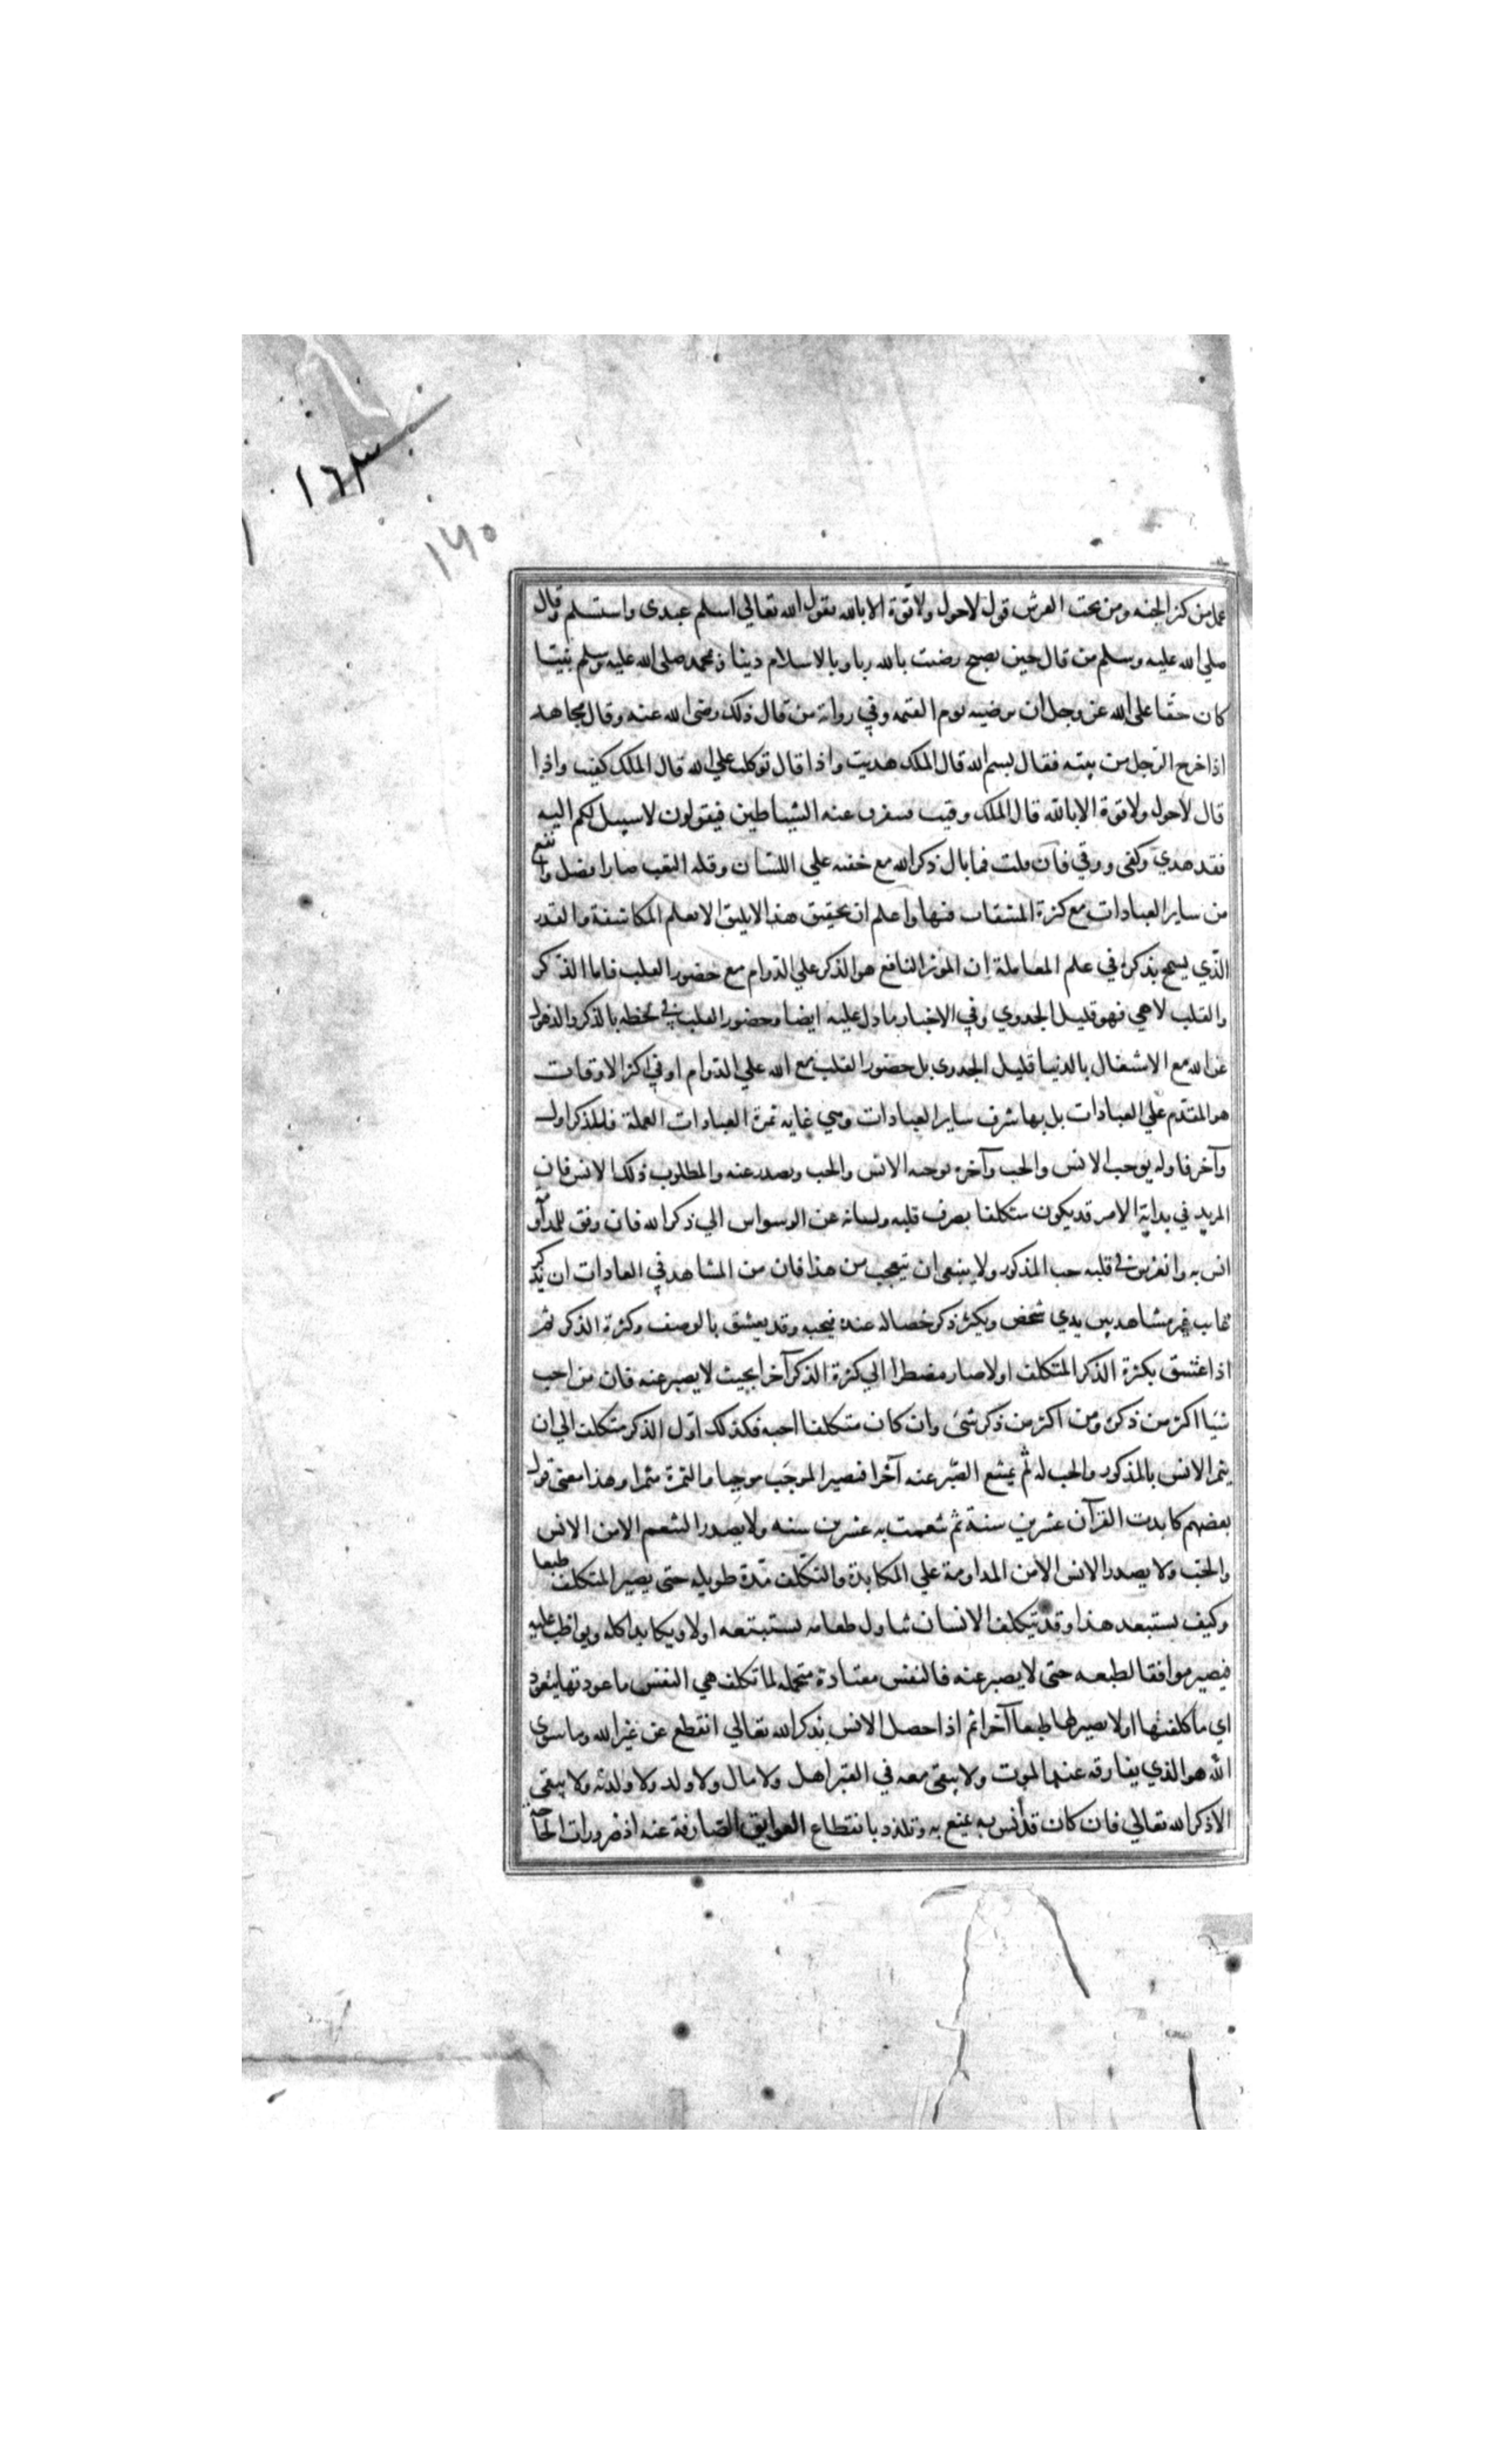 ١٦٣
١٧٥
عمل من كنز الجنه ومن تحت العرش قول لاحول ولا قوة الا بالله يقول الله تعالي اسلم عبدى واستسلم وقال
صلي الله عليه وسلم من قال حين يصبح رضيت بالله ربا وبالاسلام دينا وبمحمد صلى الله عليه وسلم نبيا
كان حقا على الله عز وجل ان يرضيه يوم القيمه وفي رواية من قال ذلك رضى الله عنه وقال مجاهد
اذا خرج الرجل من بيته فقال بسم الله قال الملك هديت واذا قال توكلت علي الله قال الملك كفيت واذا
قال لاحول ولا قوة الا بالله قال الملك وقيت فيتفرق عنه الشياطين فيقولون لا سبيل لكم اليه
فقد هدي وكفى ووقي فان قلت فما بال ذكر الله مع خفته علي اللسان وقله التعب صار افضل وانفع
من ساير العبادات مع كثرة المشقات فيها واعلم ان تحقيق هذا لا يليق الا بعلم المكاشفة والقدر
الذي يسمح بذكره في علم المعاملة ان الموثر النافع هو الذكر علي الدوام مع حضور القلب فاما الذكر
والقلب لاهي فهو قليل الجدوي وفي الاخبار ما دل عليه ايضا وحضور القلب في لحظه بالذكر والذهول
عن الله مع الاشتغال بالدنيا قليل الجدوى بل حضور القلب مع الله علي الدوام او في اكثر الاوقات
هو المقدم علي العبادات بل بها شرف ساير العبادات وهي غايه ثمرة العبادات العملة فللذكر اول
وآخر فاوله يوجب الانس والحب وآخره يوجبه الانس والحب ويصدر عنه والمطلوب ذلك الانس فان
المريد في بداية الامر قد يكون متكلفا بصرف قلبه ولسانه عن الوسواس الي ذكر الله فان وفق للمداو
انس به وانغرس في قلبه حب المذكور ولا ينبغي ان يتعجب من هذا فان من المشاهد في العادات ان يذكر
غايب غير مشاهد بين يدي شخص ويكثر ذكر خصاله عنده فيحبه وقد يعشق بالوصف وكثرة الذكر ثم
اذا عشق بكثرة الذكر المتكلف اولا صار مضطرا الي كثرة الذكر آخرا بحيث لا يصبر عنه فان من احب
شيا اكثر من ذكره ومن اكثر من ذكر شئ وان كان متكلفا احبه فكذلك اول الذكر متكلف الي ان
يثمر الانس بالمذكور والحب له ثم يمتنع الصبر عنه آخرا فيصير الموجب موجبا والثمرة مثمرا وهذا معنى قول
بعضهم كابدت القرآن عشرين سنة ثم تنعمت به عشرين سنه ولا يصدر التنعم الا من الانس
والحب ولا يصدر الانس الا من المداومة علي المكابدة والتكلف مدة طويله حتى يصير المتكلف طبعا
وكيف يستبعد هذا وقد يتكلف الانسان تناول طعامه يستبشعه اولا ويكابد اكله ويواظب عليه
فيصير موافقا لطبعه حتى لا يصبر عنه فالنفس معتادة متحمله لما تكلف هي النفس ما عودتها يتعود
اي ما كلفتها اولا يصير لها طبعا آخرا ثم اذا حصل الانس بذكر الله تعالي انقطع عن غير الله وما سوي
الله هو الذي يفارقه عند الموت ولا يبقى معه في القبر اهل ولا مال ولا ولد ولا ولدته ولا يبقى
الا ذكر الله تعالي فان كان قد انس به تمتع به وتلذذ بانقطاع العوايق الصارفة عنه اذ ضرورات الحاجه